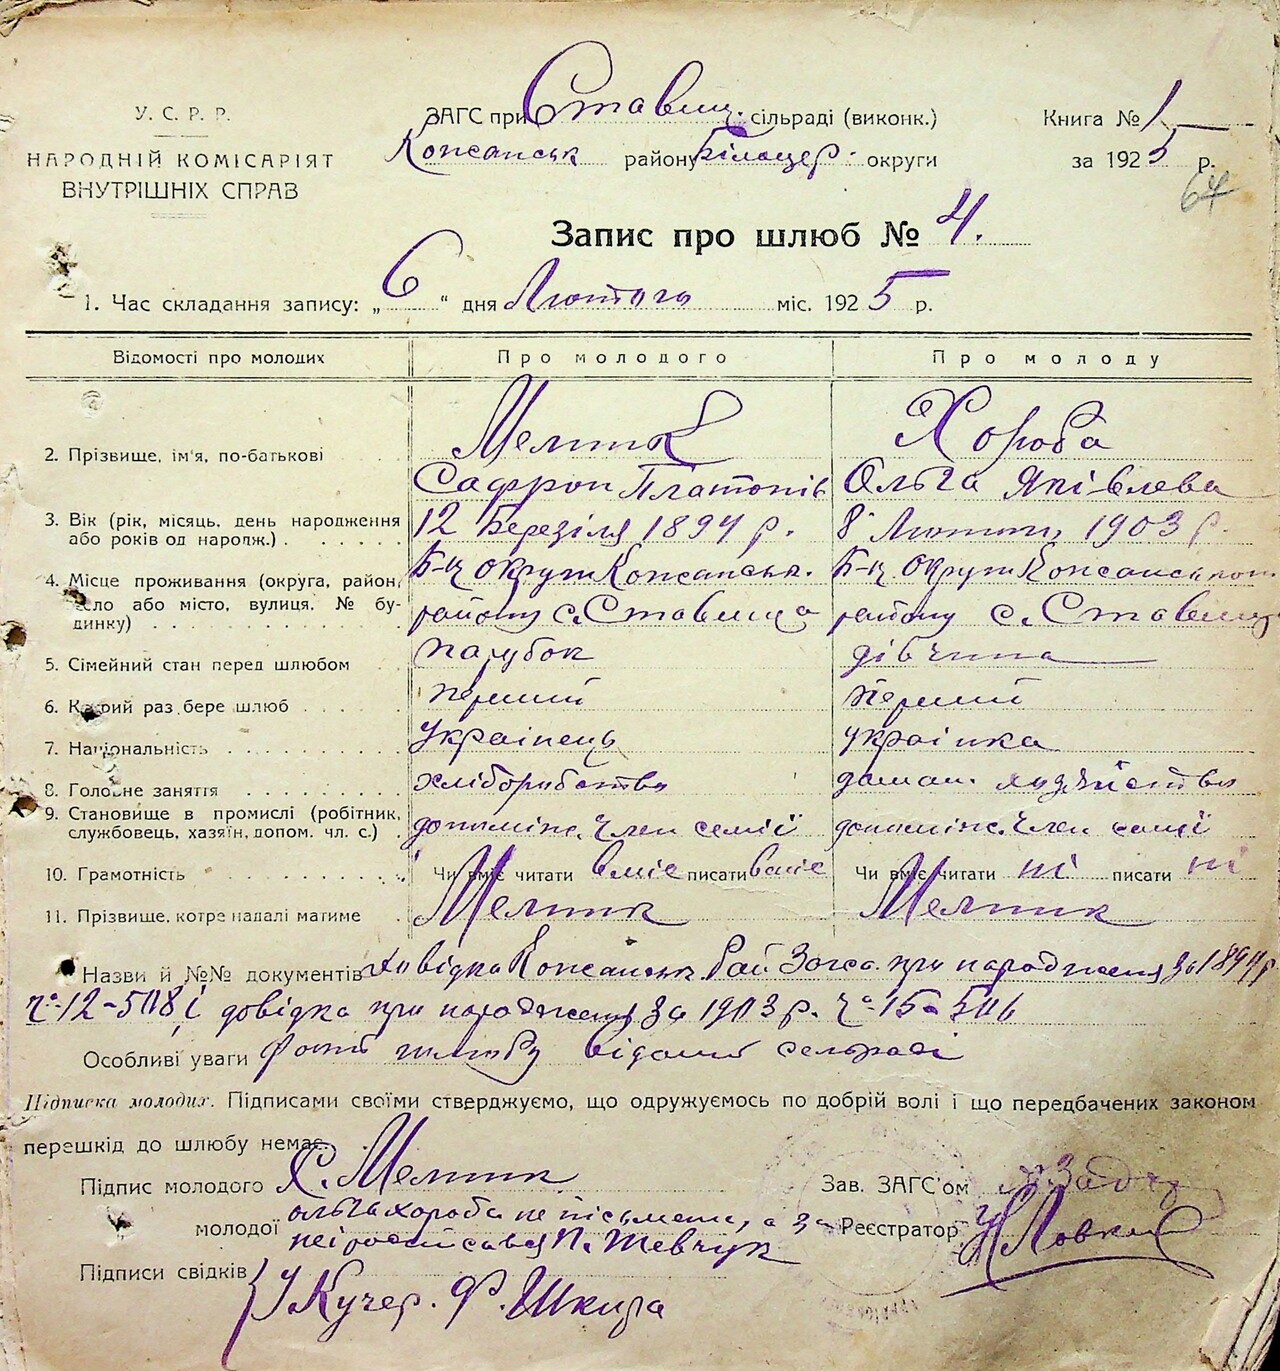 У. С. Р. Р.
НАРОДНІЙ КОМІСАРІЯТ
ВНУТРІШНІХ СПРАВ
ЗАГС при Ставищ. сільраді (виконк.)
Кожанськ району Білоцер. округи
Книга № 1
за 1925 р.
64
Запис про шлюб № 4.
1. Час складання запису: „6“ дня Лютого міс. 1925 р.
Відомості про молодих Про молодого Про молоду
2. Прізвище, ім'я, по-батькові Мельник Хороба
Сафрон Платонів Ольга Яківлева
3. Вік (рік, місяць, день народження або років од народж.) 12 Березіля 1894 р. 8 Лютого 1903 р.
4. Місце проживання (округа, район, село або місто, вулиця, № будинку) Б-ц округи Кожанськ. Б-ц. Округи Кожанського
району с. Ставища району с. Ставища
5. Сімейний стан перед шлюбом парубок дівчина
6. Котрий раз бере шлюб перший перший
7. Національність Українець українка
8. Головне заняття хліборобство домаш. хазяйство
9. Становище в промислі (робітник, службовець, хазяїн, допом. чл. с.) допоміжн. член семії допоміжн. член семії
10. Грамотність Чи вміє читати вміє писати вміє Чи вміє читати ні писати ні
11. Прізвище, котре надалі матиме Мельник Мельник
Назви й №№ документів Довідка Кожанськ. Рай Загса про народження за 1894 р.
ч. 12-508 і довідка про народження за 1903 р. ч. 15-506
Особливі уваги факт шлюбу відомий сельраді
Підписка молодих. Підписами своїми стверджуємо, що одружуємось по добрій волі і що передбачених законом
перешкід до шлюбу немає.
Підпис молодого С. Мельник
молодої Ольга Хороба не письмена, а за
неї росписався П. Шевчук
Зав. ЗАГС'ом
Реєстратор
Підписи свідків Кучер. Ф. Шкира